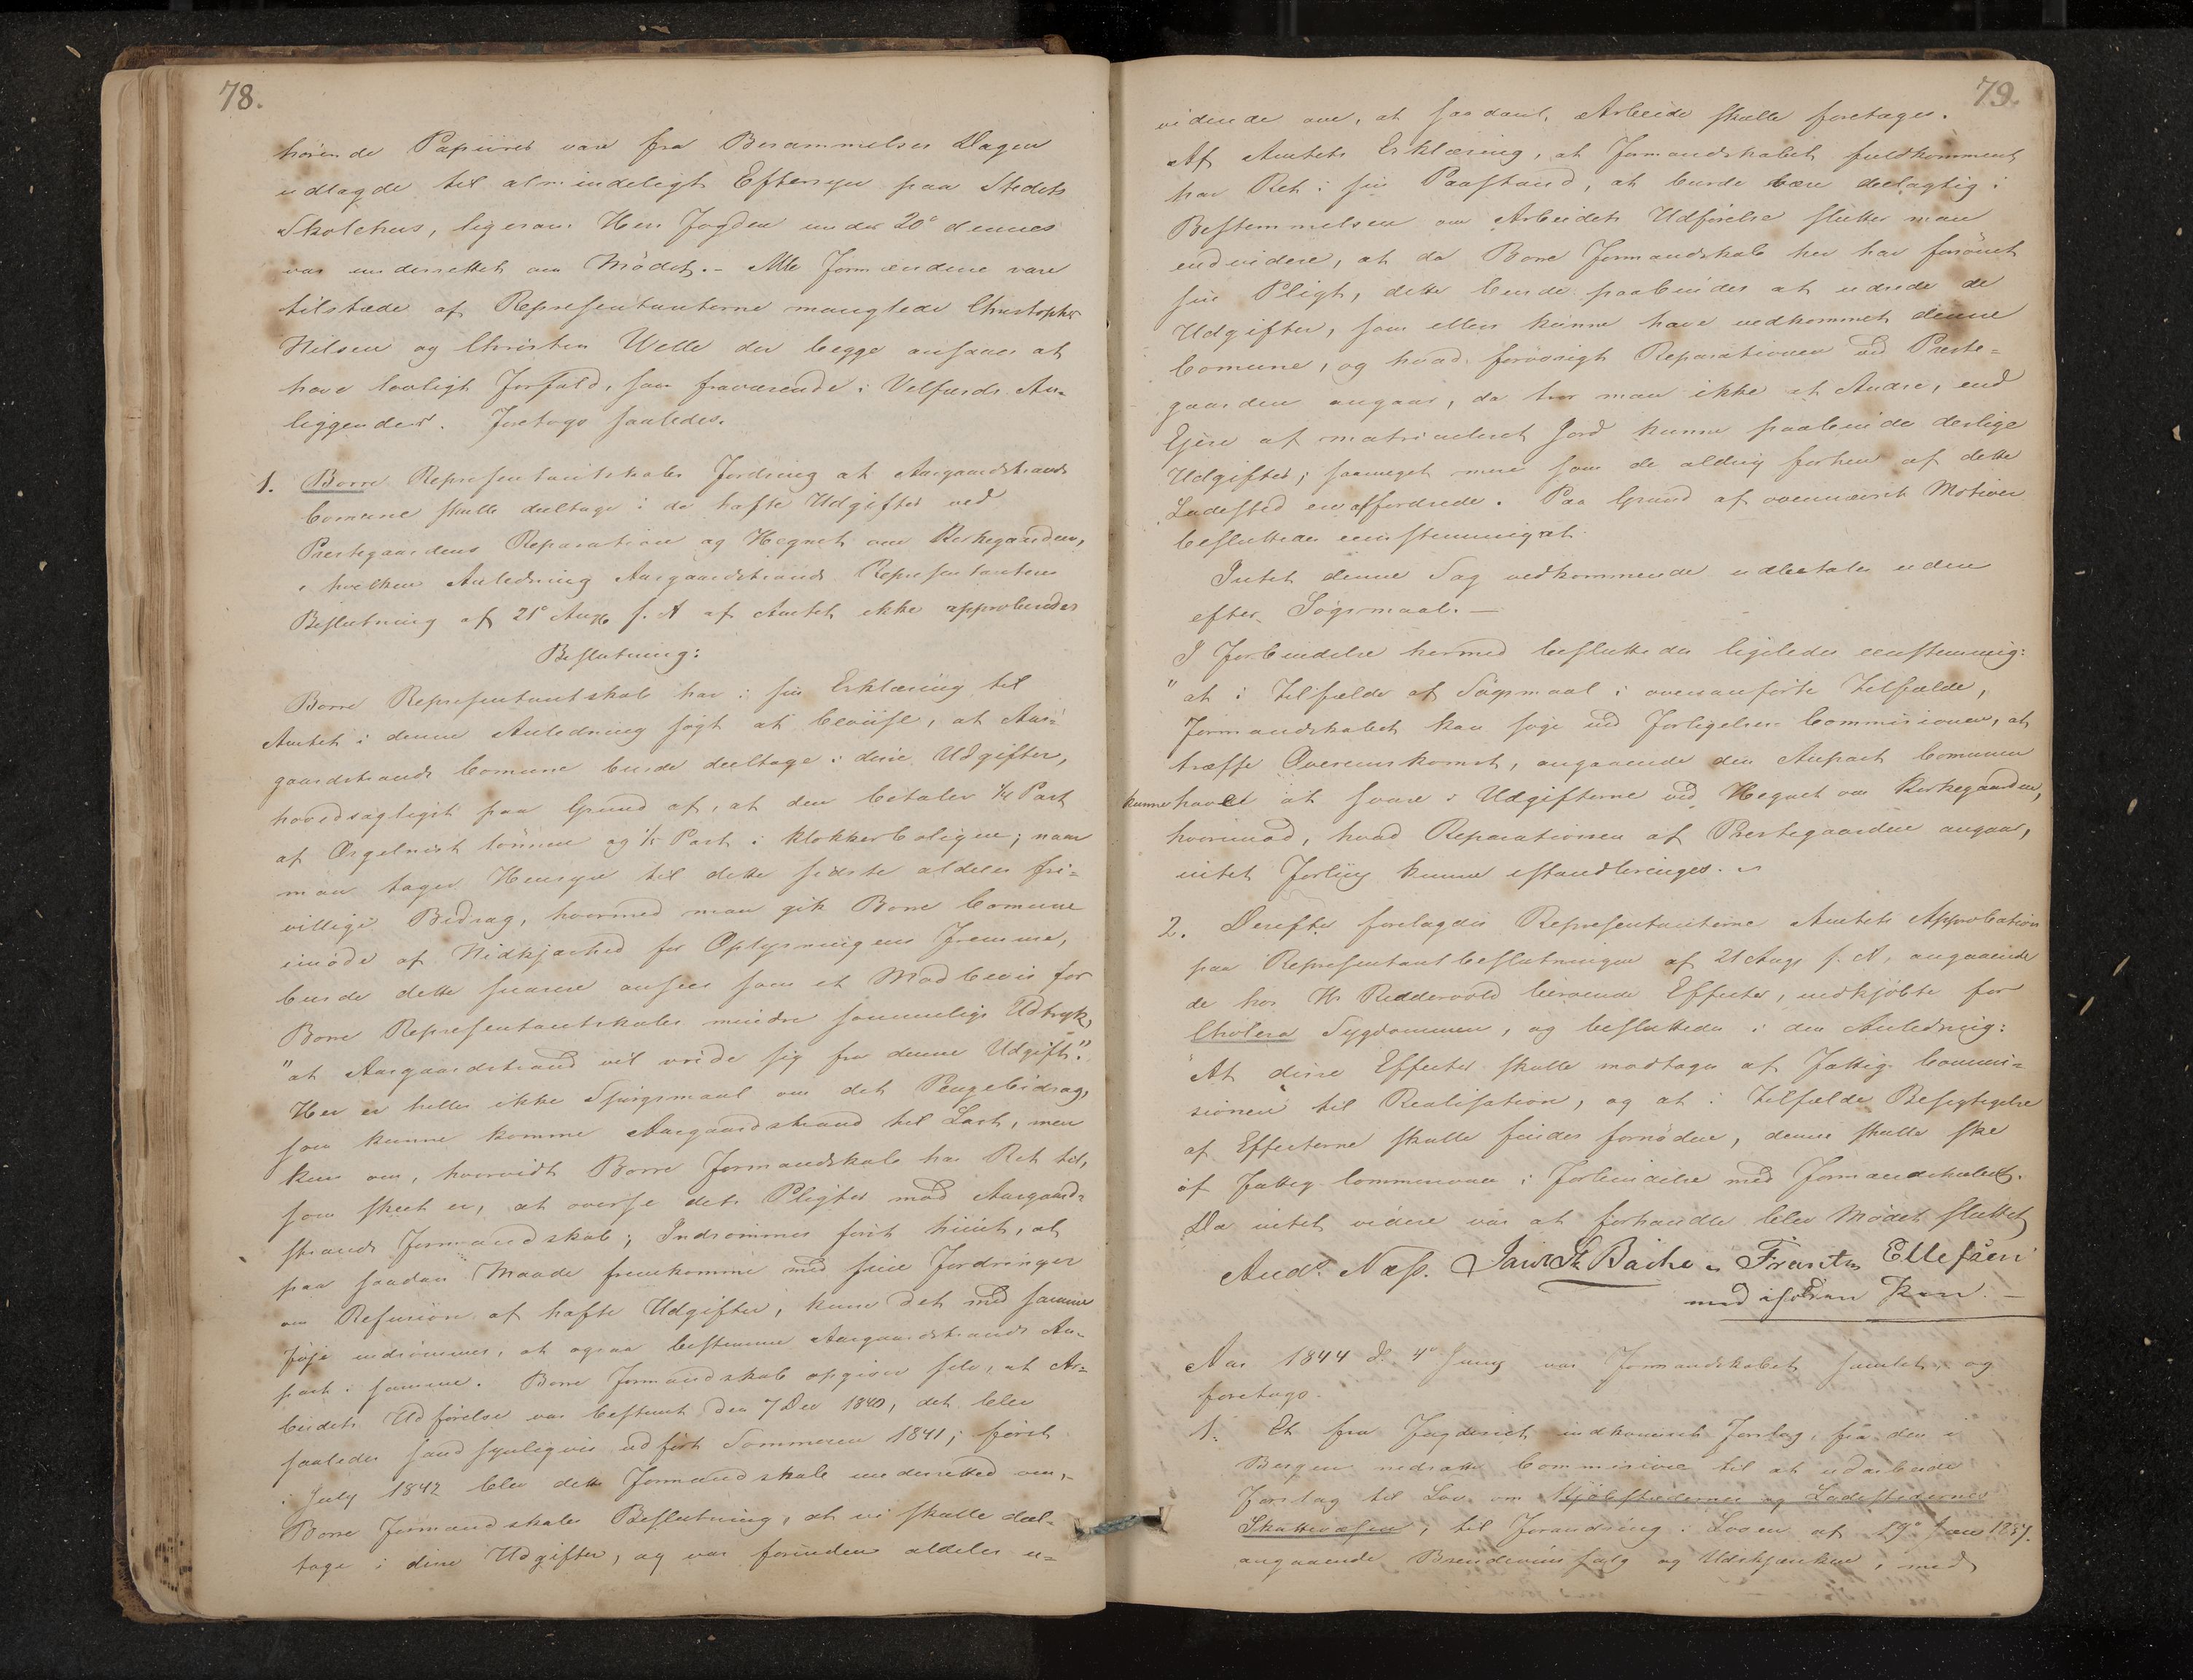 78.
hörende Papiirer vare fra Berammelses Dagen
udlagde til almindeligt Eftersyn paa Stedets
Skolehus, ligesom Herr Fogden under 20de dennes
var underrettet om Mödet. - Alle Formændene vare
tilstæde af Repræsentanterne manglede Christopher
Nilsen og Christen Welle der begge ansaaes at
have lovligt Forfald, som fraværende i Velfærds An-
liggender. Foretoges saaledes.
1. Borre Representantskabs Fordring at Aasgaardstrands
Comune skulle deeltage i de hafte Udgifter ved
Prestegaardens Reparation og Hegnet om Kirkegaarden,
i hvilken Anledning Aasgaardstrands Representanters
Beslutning af 21de Aug f. A af Amtet ikke approberedes
Beslutning:
Borre Representantskab har i sin Erklæring til
Amtet i denne Anledning sögt at beviise, at Aas-
gaardstrands Comune burde deeltage i disse Udgifter,
hovedsagligst paa Grund af, at den betaler 1/4 Part
af Orgelnist lönnen og 1/5 Part i Klokkerboligen; naar
man tager Hensyn til dette sidste aldeles fri-
villige Bidrag, hvormed man gik Borre Comune
imöde af Nidkjærhed for Oplysningens Fremme,
burde dette snarere ansees som et Modbeviis for
Borre Representantskabs mindre sömmelige Udtryk,
"at Aasgaardstrand vil vride sig fra denne Udgift."
Her er heller ikke Spörgsmaal om det Pengebidrag,
som kunne komme Aasgaardstrand til Last, men
kun om, hvorvidt Borre Formandskab har Ret til,
som skeet er, at overse dets Pligter mod Aasgaard-
strands Formandskab; Indrömmes först hiint, at
paa saadan Maade fremkomme med sine Fordringer
om Refusion af hafte Udgifter, kunde det med samme
Föje indrömmes, at ogsaa bestemme Aasgaardstrands An-
part i samme. Borre Formandskab opgiver selv, at Ar-
beidets Udförelse var bestemt den 7 Dec 1840, det blev
saaledes sandsynligviis udfört Sommeren 1841; först
i July 1842 blev dette Formandskab underrettet om,
Borre Formandskabs Beslutning, at vi skulle deel-
tage i disse Udgifter, og var forinden aldeles u-
79.
vidende om, at saadant Arbeide skulle foretages.
Af Amtets Erklæring, at Formandskabet fuldkomment
har Ret i sin Paastand, at burde være deelagtig i
Bestemmelsen om Arbeidets Udförelse slutter man
endvidere, at da Borre Formandskab her har forsömt
sin Pligt, dette burde paabindes at udrede de
Udgifter, som ellers kunne have vedkommet denne
Comune, og hvad forövrigt Reparationen ved Preste-
gaarden angaar, da tror man ikke at Andre, end
Ejere af matriculeret Jord kunne paabindes deslige
Udgifter; saameget mere som de aldrig forhen af dette
Ladested ere affordrede. Paa Grund af ovennævnte Motiver
besluttedes eenstemmigat:
Intet denne Sag vedkommende udbetales uden
efter Sögsmaal. -
I Forbindelse hermed besluttedes ligeledes eenstemmig:
"at i Tilfælde af Sögsmaal i ovenanförte Tilfælde,
Formandskabet kan söge ved Forligelses Commisionen, at
træffe Overeenskomst, angaaende den Anpart Comunen
kunne havet at svare i Udgifterne ved Hegnet om Kirkegaarden,
hvorimod, hvad Reparationen af Prestegaarden angaar,
intet Forliig kunne istandbringes.
2. Derefter forelagdes Representanterne Amtets Approbation
paa Representantbeslutningen af 21 Aug f. A, angaaende
de hos Hr Reddervold beroende Effecter, indkjöbte for
Cholera Sygdommen, og besluttedes i den Anledning:
At disse Effecter skulle modtages af Fattig Commi-
sionen til Realisation, og at i Tilfælde Besigtigelse
af Effecterne skulle findes fornöden, denne skulle skee
af Fattig Commisionen i Forbindelse med Formandskabet.
Da intet videre var at forhandle blev Mödet sluttet
And. Næss. Bache Frants Ellefsen
med ihol. Pen. -
Aar 1844 d. 4de Juny var Formandskabet samlet, og
foretoges.
1. Et fra Fogderiet indkommet Forslag fra den i
Bergen nedsatte Commision til at udarbeide
Forslag til Lov om Kjöbstædernes og Ladestedernes
Skattevæsen, til Forandring i Loven af
angaaende Brændeviins Salg og Udskjænken, med